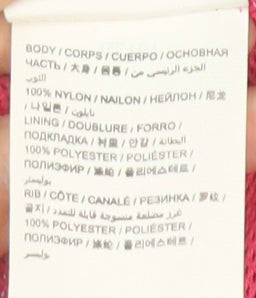 BODY / CORPS / CUERPO / ОСНОВНАЯ
ЧАСТЬ / 大身 / 몸통 / الجزء الرئيسي من
الثوب
100% NYLON / NAILON / НЕЙЛОН / 尼龙
/ 나일론 / نايلون
LINING / DOUBLURE / FORRO /
ПОДКЛАДКА / 衬里 / 안감 / البطانة
100% POLYESTER / POLIÉSTER /
ПОЛИЭФИР / 涤纶 / 폴리에스테르 /
بوليستر
RIB / CÔTE / CANALÉ / РЕЗИНКА / 罗纹 /
골지 / غرز مضلعة منسوجة قابلة للتمدد
100% POLYESTER / POLIÉSTER /
ПОЛИЭФИР / 涤纶 / 폴리에스테르 /
بوليستر